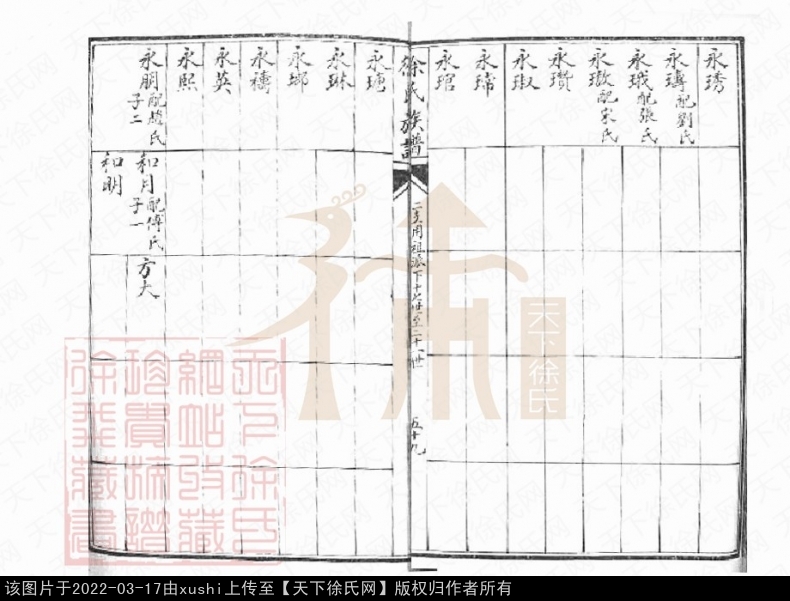 永琇
永瑼配劉氏
永珴配張氏
永璈配宋氏
永瓚
永琡
永㻛
永琯
徐氏族譜
二支用祖派下十七世至二十一世
五十九
永瑭
永琳
永瑯
永禱
永英
永熙
永朋配趙氏
子二
和月配傅氏
子一
方大
和明
天下徐氏
天下徐氏網站收藏珍貴族譜徐斐藏書
该图片于2022-03-17由xushi上传至【天下徐氏网】版权归作者所有